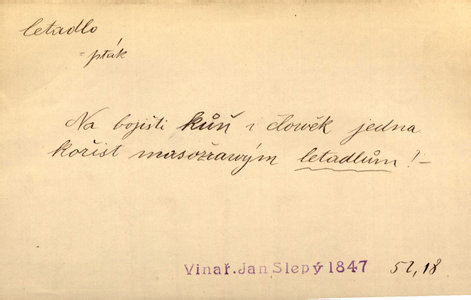 letadlo
= pták
Na bojišti kůň i člowěk jedna
kořist masožrawým letadlům! –
Vinař. Jan Slepý 1847 51, 18